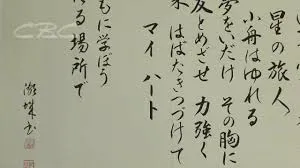 星の旅人
小舟はゆれる
夢をいだけ その胸に
友とめざせ 力強く
はばたきつづけて
マイ ハート
もに学ぼう
る場所で
CBC